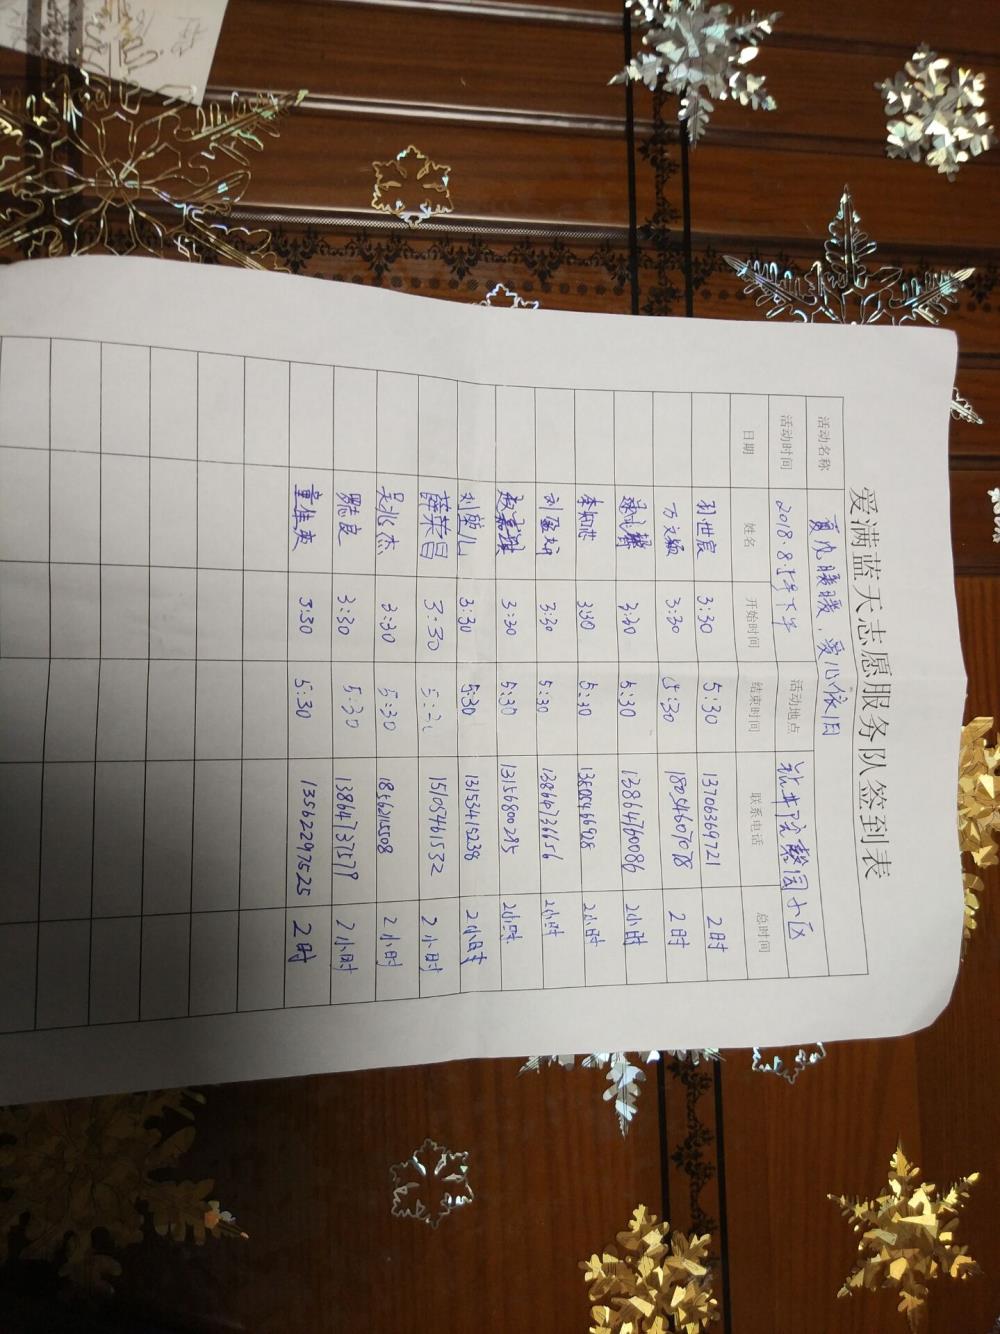 爱满蓝天志愿服务队签到表
活动名称 夏凡暖暖，爱心依旧
活动时间 2018.8.5号下午 活动地点 小区
日期 姓名 开始时间 结束时间 联系电话 总时间
3:30 5:30 13706369721 2时
万文 3:30 5:30 18054607078 2时
3:30 5:30 13864760086 2小时
李 3:30 5:30 13808466928 2小时
刘 3:30 5:30 13864736656 2小时
赵嘉琪 3:30 5:30 13156800285 2小时
刘 3:30 5:30 13153415238 2小时
薛荣昌 3:30 5:30 15105461532 2小时
吴兆杰 3:30 5:30 18562115508 2小时
良 3:30 5:30 13864737579 2小时
童佳爽 3:30 5:30 13562297525 2时